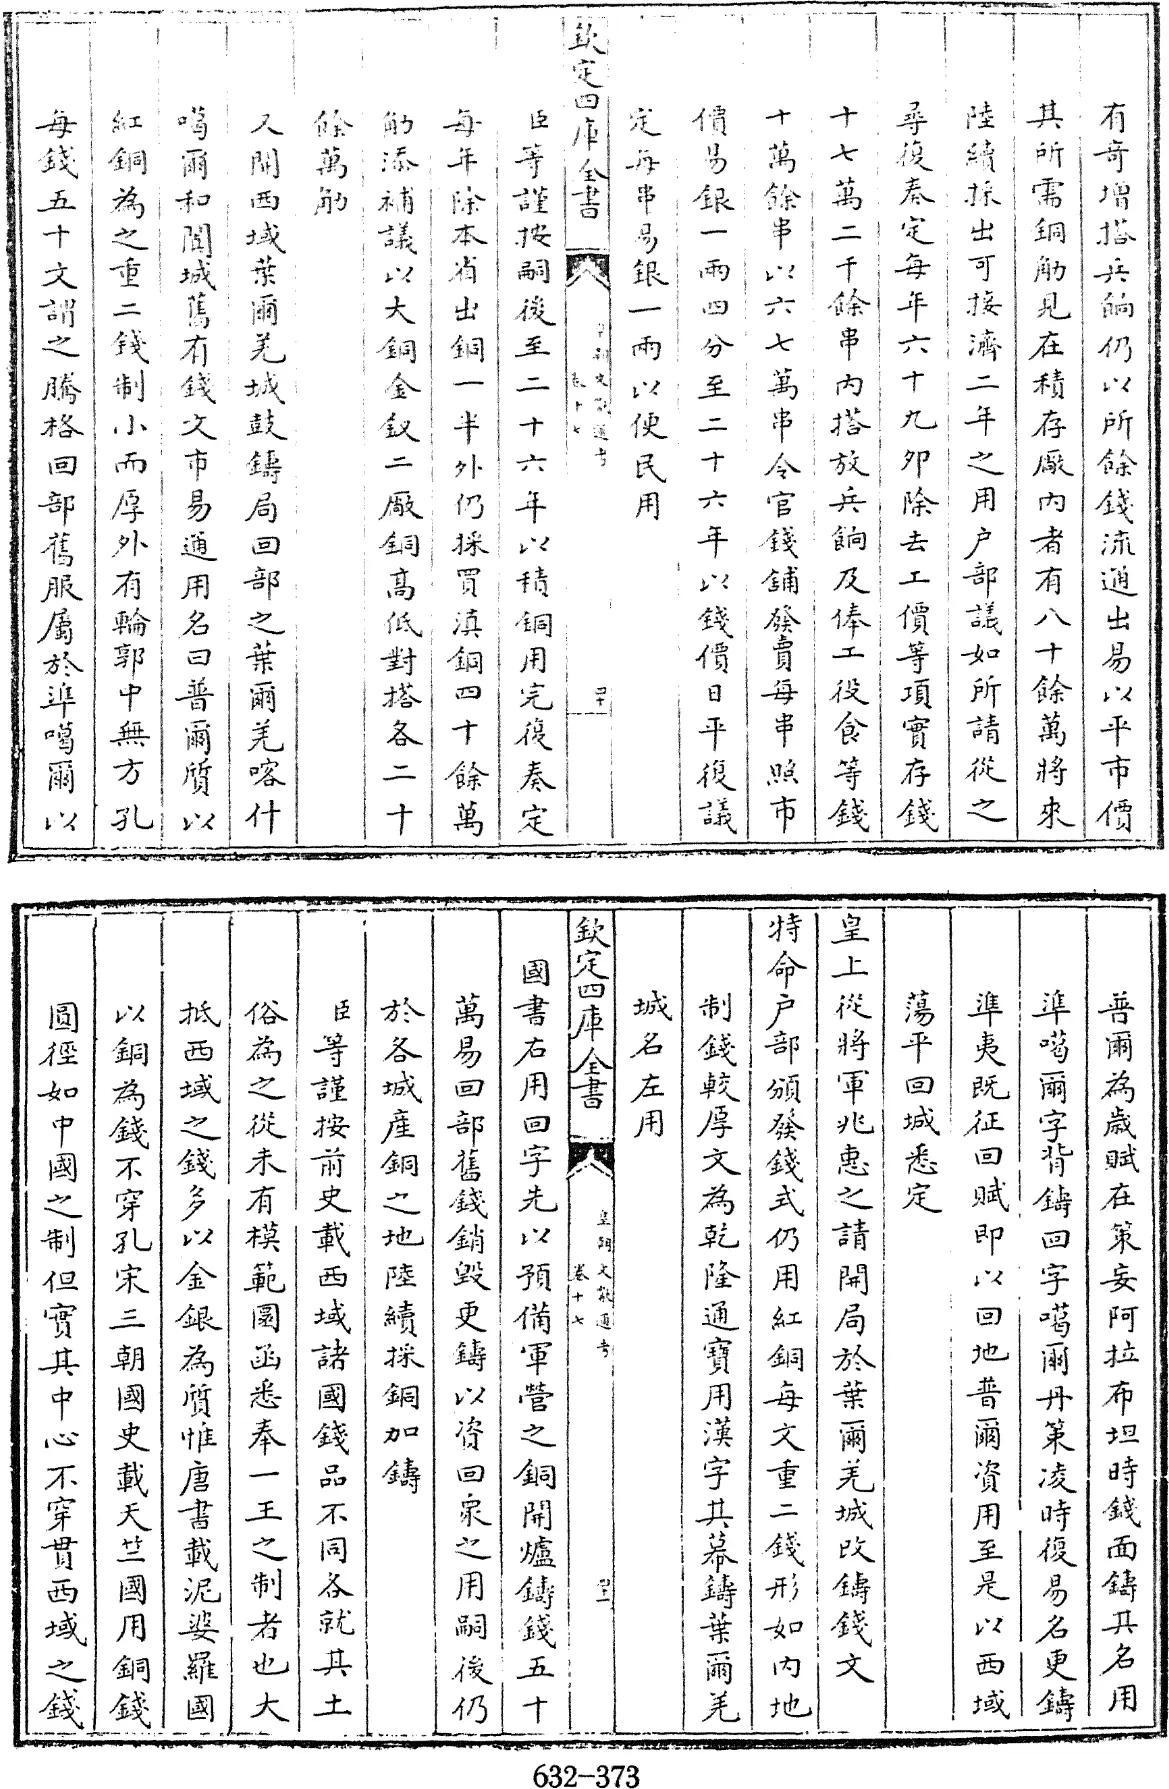 有奇増搭兵餉仍以所餘錢流通出易以平市價
其所需銅觔見在積存厰内者有八十餘萬將來
陸續採出可接濟二年之用户部議如所請從之
尋復奏定每年六十九卯除去工價等項實存錢
十七萬二千餘串内搭放兵餉及俸工役食等錢
十萬餘串以六七萬串令官錢舖發賣每串照市
價易銀一兩四分至二十六年以錢價日平復議
定每串易銀一兩以便民用
欽定四庫全書
皇朝文獻通考
卷十七
四十
臣等謹按嗣後至二十六年以積銅用完復奏定
每年除本省出銅一半外仍採買滇銅四十餘萬
觔添補議以大銅金釵二厰銅高低對搭各二十
餘萬觔
又開西域葉爾羌城鼓鑄局回部之葉爾羌喀什
噶爾和闐城舊有錢文市易通用名曰普爾質以
紅銅為之重二錢制小而厚外有輪郭中無方孔
每錢五十文謂之騰格回部舊服屬於準噶爾以
普爾為歲賦在策妄阿拉布坦時錢面鑄其名用
準噶爾字背鑄回字噶爾丹策凌時復易名更鑄
準夷既征回賦即以回地普爾資用至是以西域
蕩平回城悉定
皇上從將軍兆惠之請開局於葉爾羌城改鑄錢文
特命户部頒發錢式仍用紅銅每文重二錢形如内地
制錢較厚文為乾隆通寶用漢字其幕鑄葉爾羌
城名左用
欽定四庫全書
皇朝文獻通考
卷十七
四十一
國書右用回字先以預備軍營之銅開爐鑄錢五十
萬易回部舊錢銷毀更鑄以資回衆之用嗣後仍
於各城産銅之地陸續採銅加鑄
臣等謹按前史載西域諸國錢品不同各就其土
俗為之從未有模範圜函悉奉一王之制者也大
抵西域之錢多以金銀為質惟唐書載泥婆羅國
以銅為錢不穿孔宋三朝國史載天竺國用銅錢
圓徑如中國之制但實其中心不穿貫西域之錢
632-373